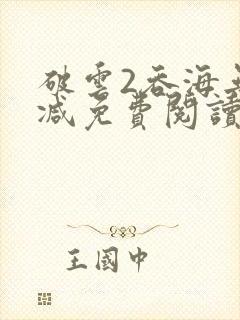 破雲2吞海
減免費閱讀
王國中